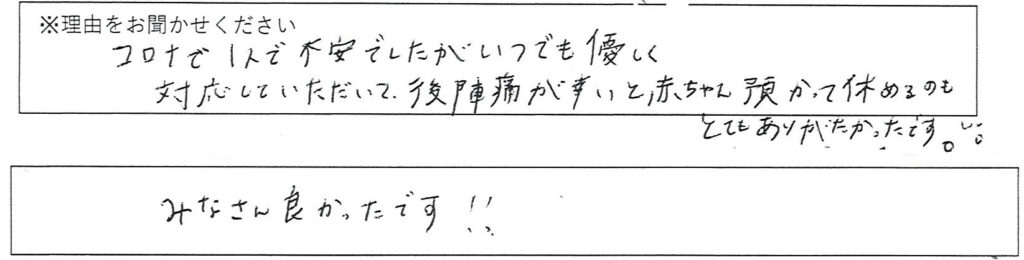 ※理由をお聞かせください
コロナで1人で不安でしたがいつでも優しく
対応していただいて、後陣痛が辛いと、赤ちゃん預かって休めるのも
とてもありがたかったです。
みなさん良かったです!!